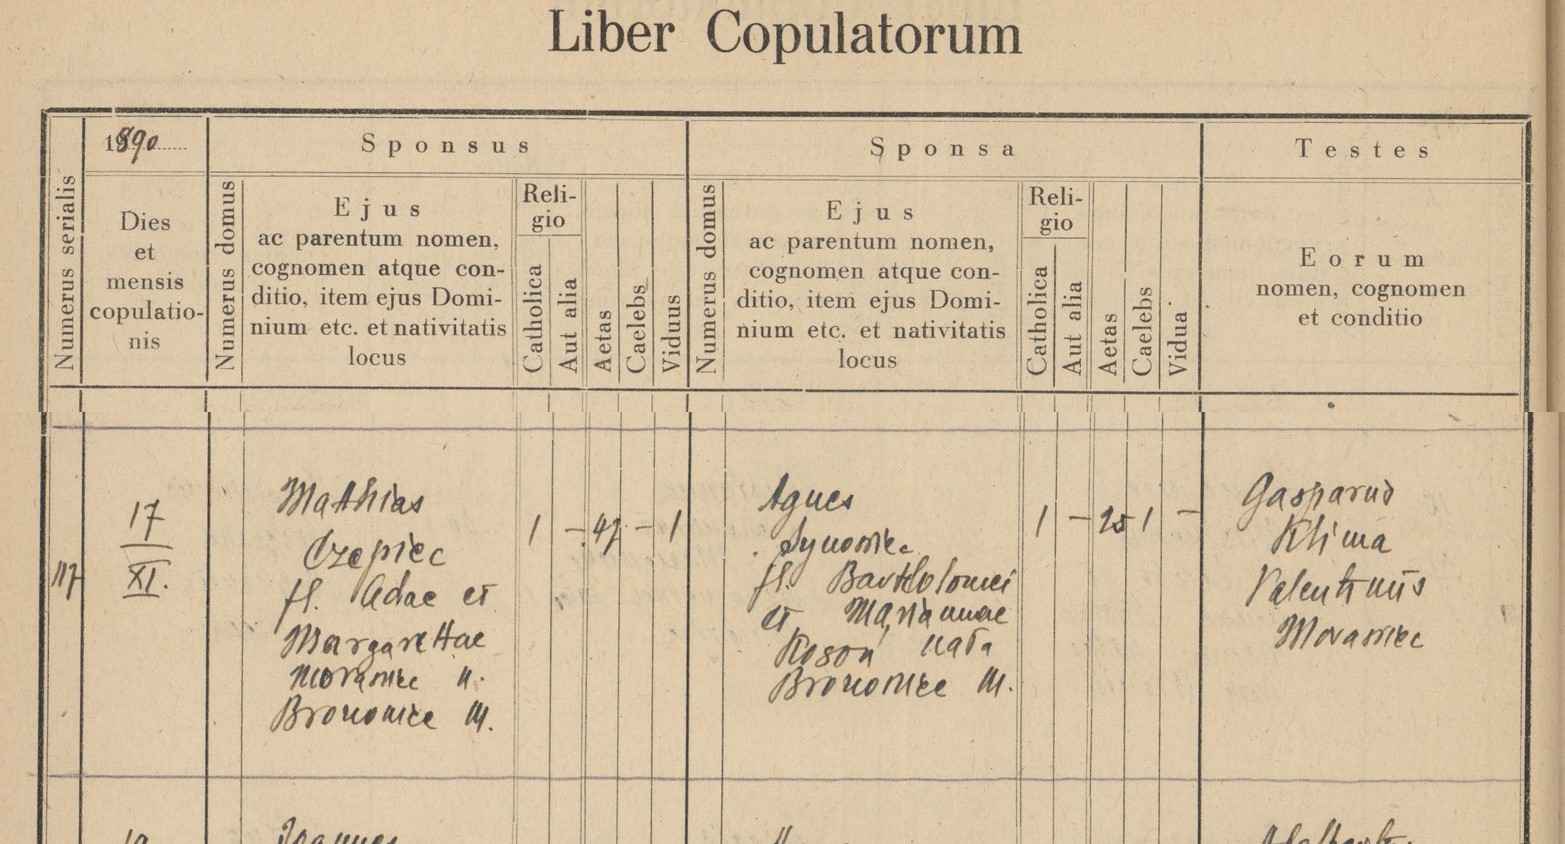 Liber Copulatorum
Numerus serialis
1890
Dies
et
mensis
copulatio-
nis
Sponsus
Numerus domus
Ejus
ac parentum nomen,
cognomen atque con-
ditio, item ejus Domi-
nium etc. et nativitatis
locus
Reli-
gio
Catholica
Aut alia
Aetas
Caelebs
Viduus
Sponsa
Numerus domus
Ejus
ac parentum nomen,
cognomen atque con-
ditio, item ejus Domi-
nium etc. et nativitatis
locus
Reli-
gio
Catholica
Aut alia
Aetas
Caelebs
Vidua
Testes
Eorum
nomen, cognomen
et conditio
17
XI.
Mathias
Czepiec
fl. Adae et
Margarethae
Morawiec n.
Bronowice M.
1 - 47 - 1
Agnes
Synowiec
fl. Bartholomei
et Mariannae
Kosoń nata
Bronowice M.
1 - 25 1 -
Gasparus
Klima
Valentinus
Morawiec
Joannes